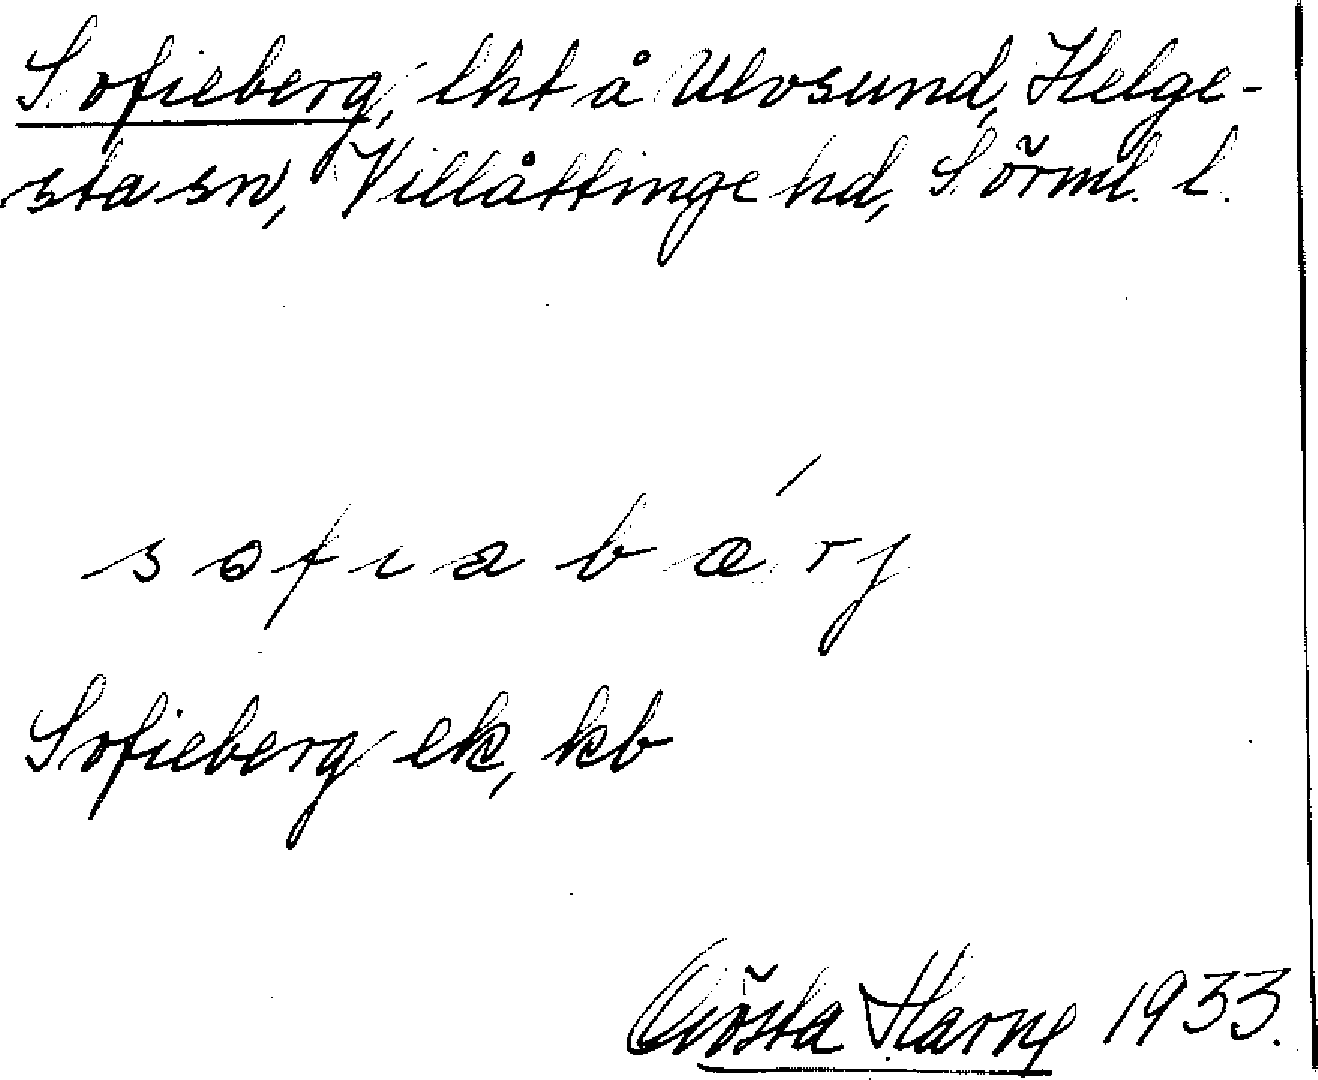 Sofieberg, lht å Ulvsund, Helge-
sta sn, Villåttinge hd, Sörml. l.
sofiabærj
Sofieberg ek, kb
Gösta Harng 1933.